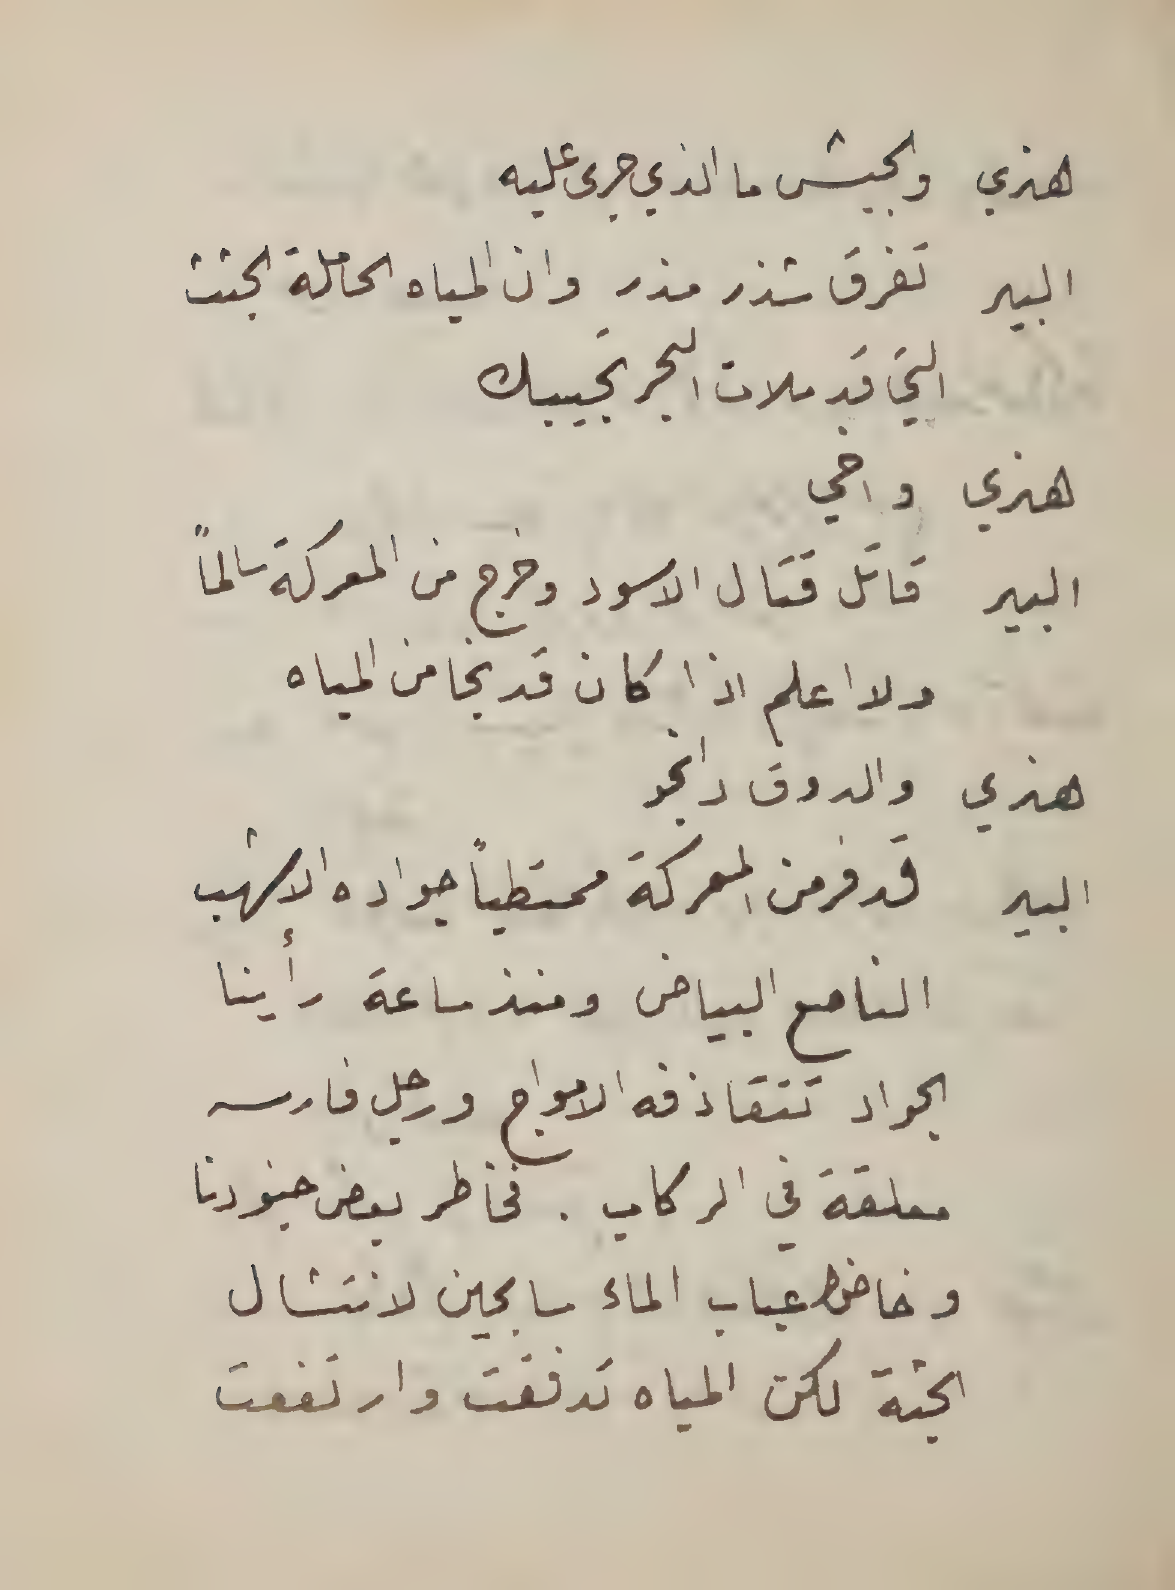 هنري والجيش ما الذي جرى عليه
البير تفرق شذر مذر وان المياه الحاملة الجثث
التي قد ملات البحر تجيبك
هنري واخي
البير قاتل قتال الاسود وخرج من المعركة سالماً
ولا اعلم اذا كان قد نجا من المياه
هنري والدوق دانجو
البير قد فر من المعركة ممتطياً جواده الاشهب
الناصع البياض ومنذ ساعة رأينا
الجواد تتقاذفه الامواج ورجل فارسه
معلقة في الركاب . فخاطر بعض جنودنا
وخاض عباب الماء سابحين لانتشال
الجثة لكن المياه تدفقت وارتفعت